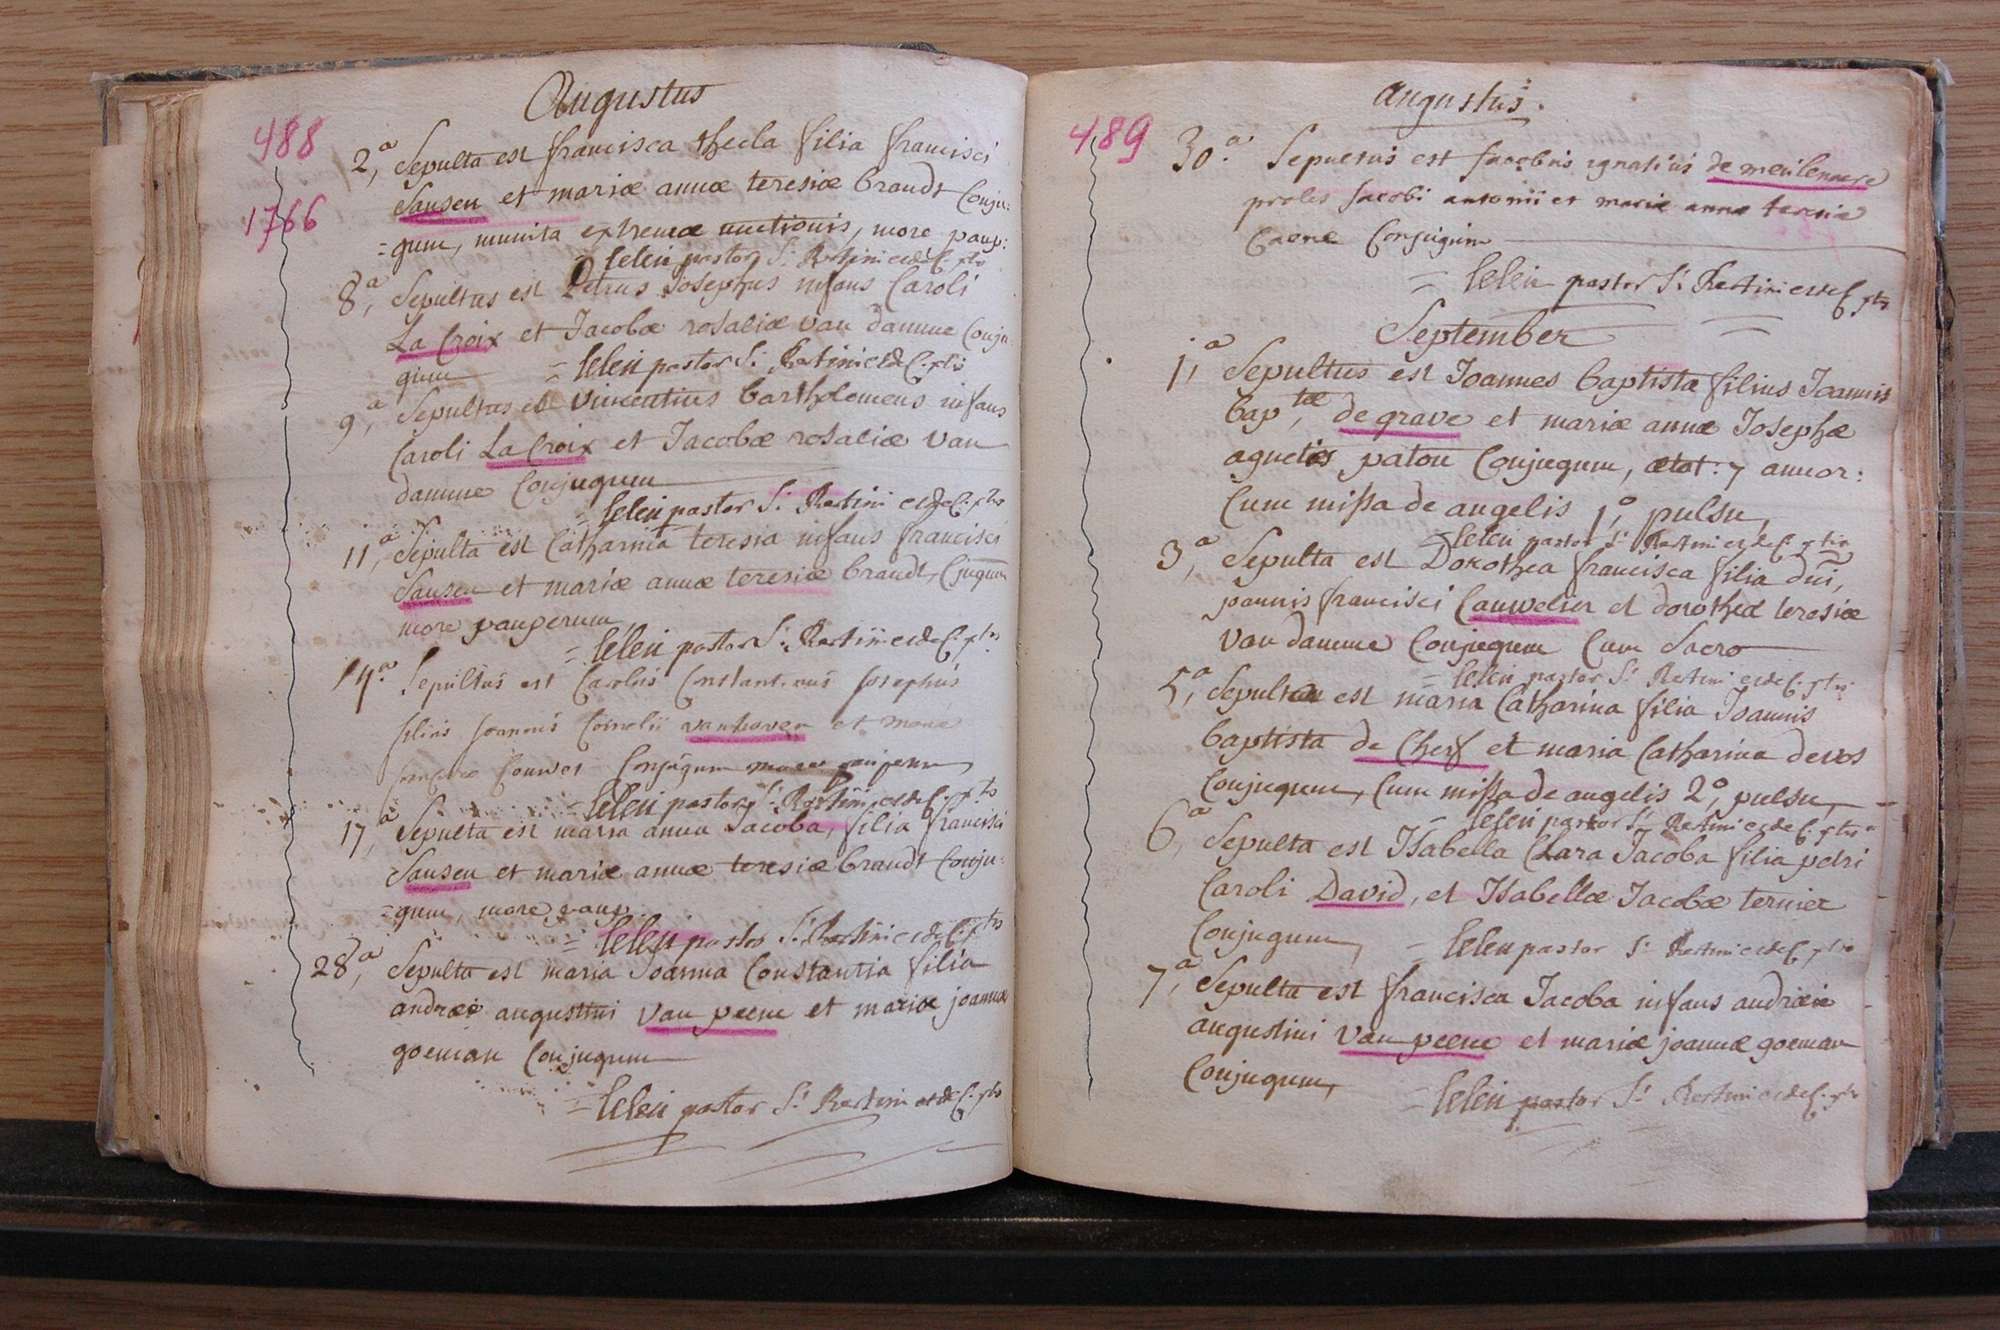 Augustus
488
1766
2,a Sepulta est francisca thecla filia francisci
Sansen et mariæ annæ teresiæ brandt Conju:
=gum, munita extremæ unctionis, more paup:
= Celen pastor Sti
8,a Sepultus est Petrus Josephus infans Caroli
La Croix et Jacobæ rosaliæ van damme Conju
gum = Celen pastor Sti
9,a Sepultus est vincentius bartholomeus infans
Caroli La Croix et Jacobæ rosaliæ van
damme Conjugum
= Celen pastor Sti
11,a Sepulta est Catharina teresia infans francisci
Sansen et mariæ annæ teresiæ brandt, Cjugum
more pauperum
= Celen pastor Sti
14.a Sepultus est Carolus Constantinus Josephus
filius Joannis Cornelii vanhoven et mariæ
Conjugum more pauperum
= Celen pastor Sti
17,a Sepulta est maria anna Jacoba, filia francisci
Sansen et mariæ annæ teresiæ brandt Conju-
=gum, more paup.
= Celen pastor Sti
28,a Sepulta est maria Joanna Constantia filia
andreæ augustini van peene et mariæ joannæ
goeman Conjugum
= Celen pastor Sti
Augustus.
489
30.a Sepultus est Jacobus ignatius de meulenaere
proles Jacobi antonii et mariæ annæ teresiæ
Conjugum
= Celen pastor Sti
September
1,a Sepultus est Joannes baptista filius Joannis
bap,tæ de grave et mariæ annæ Josephæ
agnetis patou Conjugum, ætat: 7 annor:
Cum missa de angelis 1,o pulsu,
= Celen pastor Sti
3,a Sepulta est Dorothea francisca filia dni,
joannis francisci Cauwelier et dorotheæ teresiæ
van damme Conjugum Cum Sacro
= Celen pastor Sti
5,a Sepulta est maria Catharina filia Joannis
baptista de Cherf et maria Catharina devos
Conjugum, Cum missa de angelis 2,o pulsu,
= Celen pastor Sti
6,a Sepulta est Isabella Clara Jacoba filia petri
Caroli David, et Isabellæ Jacobæ ternier
Conjugum, = Celen pastor Sti
7,a Sepulta est francisca Jacoba infans andreæ
augustini van peene et mariæ joannæ goeman
Conjugum,
= Celen pastor Sti